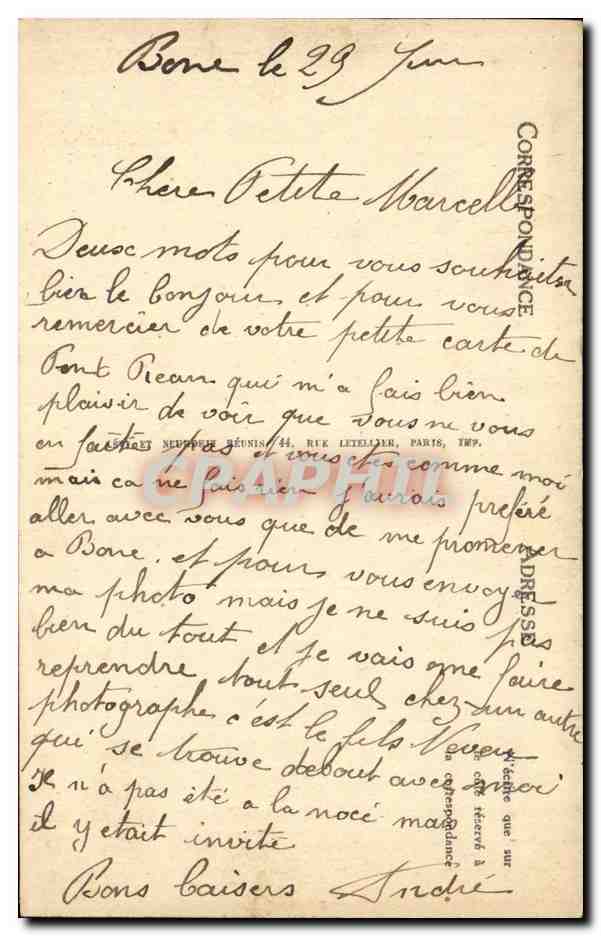 Bone le 29 Juin
Chere Petite Marcelle
Deux mots pour vous souhaiter
bien le bonjour et pour vous
remercier de votre petite carte de
Pont Rean qui m'a fais bien
plaisir de voir que vous ne vous
en faite pas et vous etes comme moi
mais ca ne fais rien j'aurais preferé
aller avec vous que de me promener
a Bone. et pour vous envoye
ma photo mais je ne suis pas
bien du tout et je vais me faire
reprendre tout seul chez un autre
photographe c'est le fils Neveu
qui se trouve debout avec moi
Il n'a pas été a la nocé mais
il y etait invité
Bons baisers André
CORRESPONDANCE
ADRESSE
NEURDEIN RÉUNIS, 44, RUE LETELLIER, PARIS, IMP.
N'écrire que sur
le côté réservé à
la correspondance
CPAPHIL